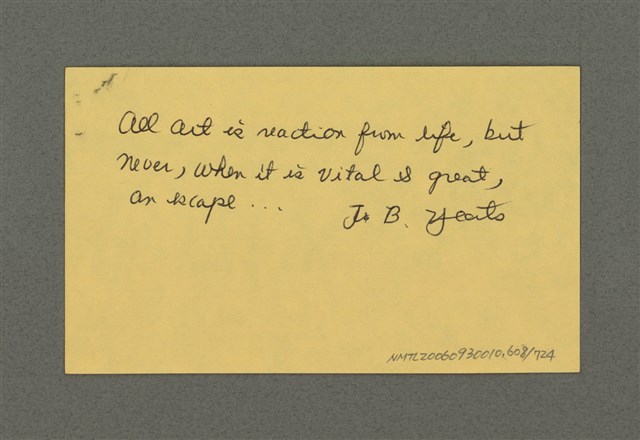 All art is reaction from life, but
never, when it is vital & great,
an escape ...
J. B. Yeats
NMTL20060930010.608/724